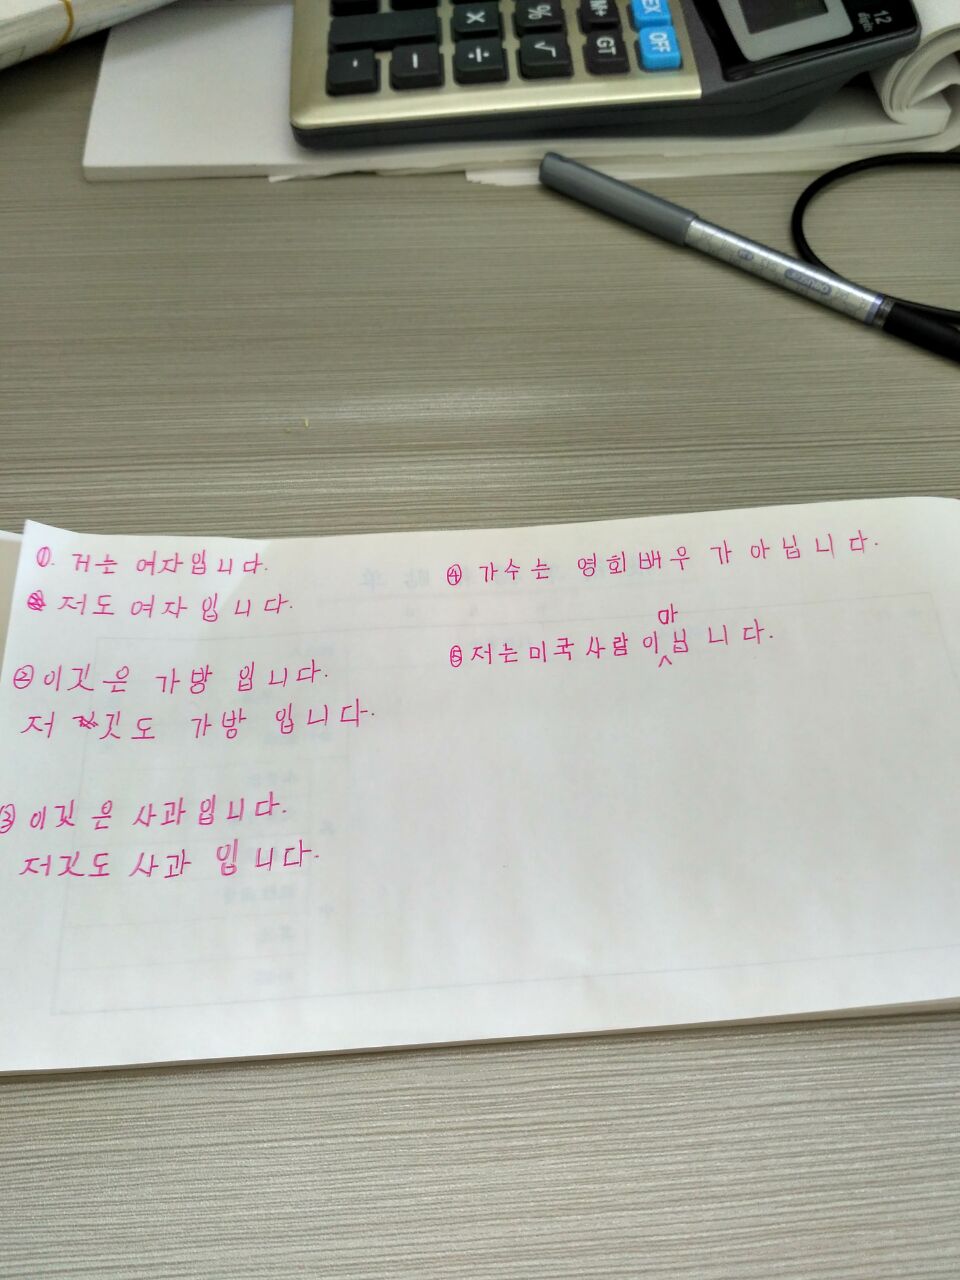 12
digits
X
%
M+
EX
÷
√
GT
OFF
·
−
①. 거는 여자입니다.
저도 여자입니다.
② 이깃은 가방 입니다.
저깃도 가방 입니다.
③ 이깃은 사과입니다.
저깃도 사과 입니다.
④ 가수는 영회배우가 아닙니다.
⑤ 저는 미국사람이 아닙니다.